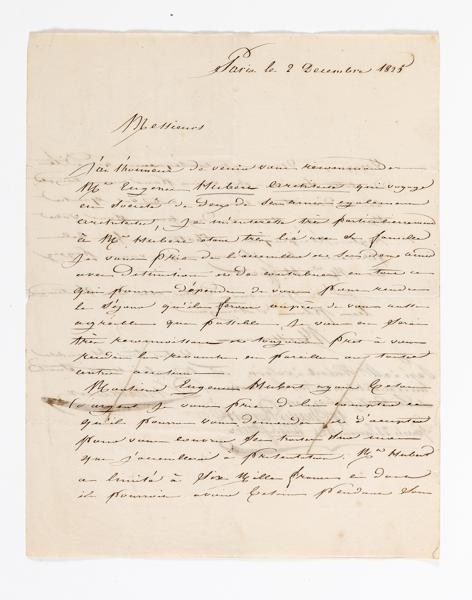 Paris le 2 Decembre 1825
Messieurs
J'ai l'honneur de venir vous recommander
Mr. Eugene Hubert architecte qui voyage
en Societé de deux de Ses amis egalement
architectes, Je m'interesse très particulierement
à Mr. Hubert etant très lié avec Sa famille
Je vous prie de l'accueillir et Ses deux amis
avec distinction et de contribuer en tout ce
qui pourra dépendre de vous pour rendre
le Séjour qu'ils feront auprès de vous aussi
agreable que possible. Je vous en Serai
très reconnaissant et toujours Prêt à vous
rendre la revanche en pareille ou toute
autre occasion.
Monsieur Eugene Hubert ayant besoin
d'argent Je vous prie de lui compter ce
qu'il pourra vous demander et d'accepter
pour vous couvrir Ses traites Sur moi
que j'accueillerai à présentation. Mr. Hubert
a limité à Six Mille francs ce dont
il pourroit avoir besoin pendant Son